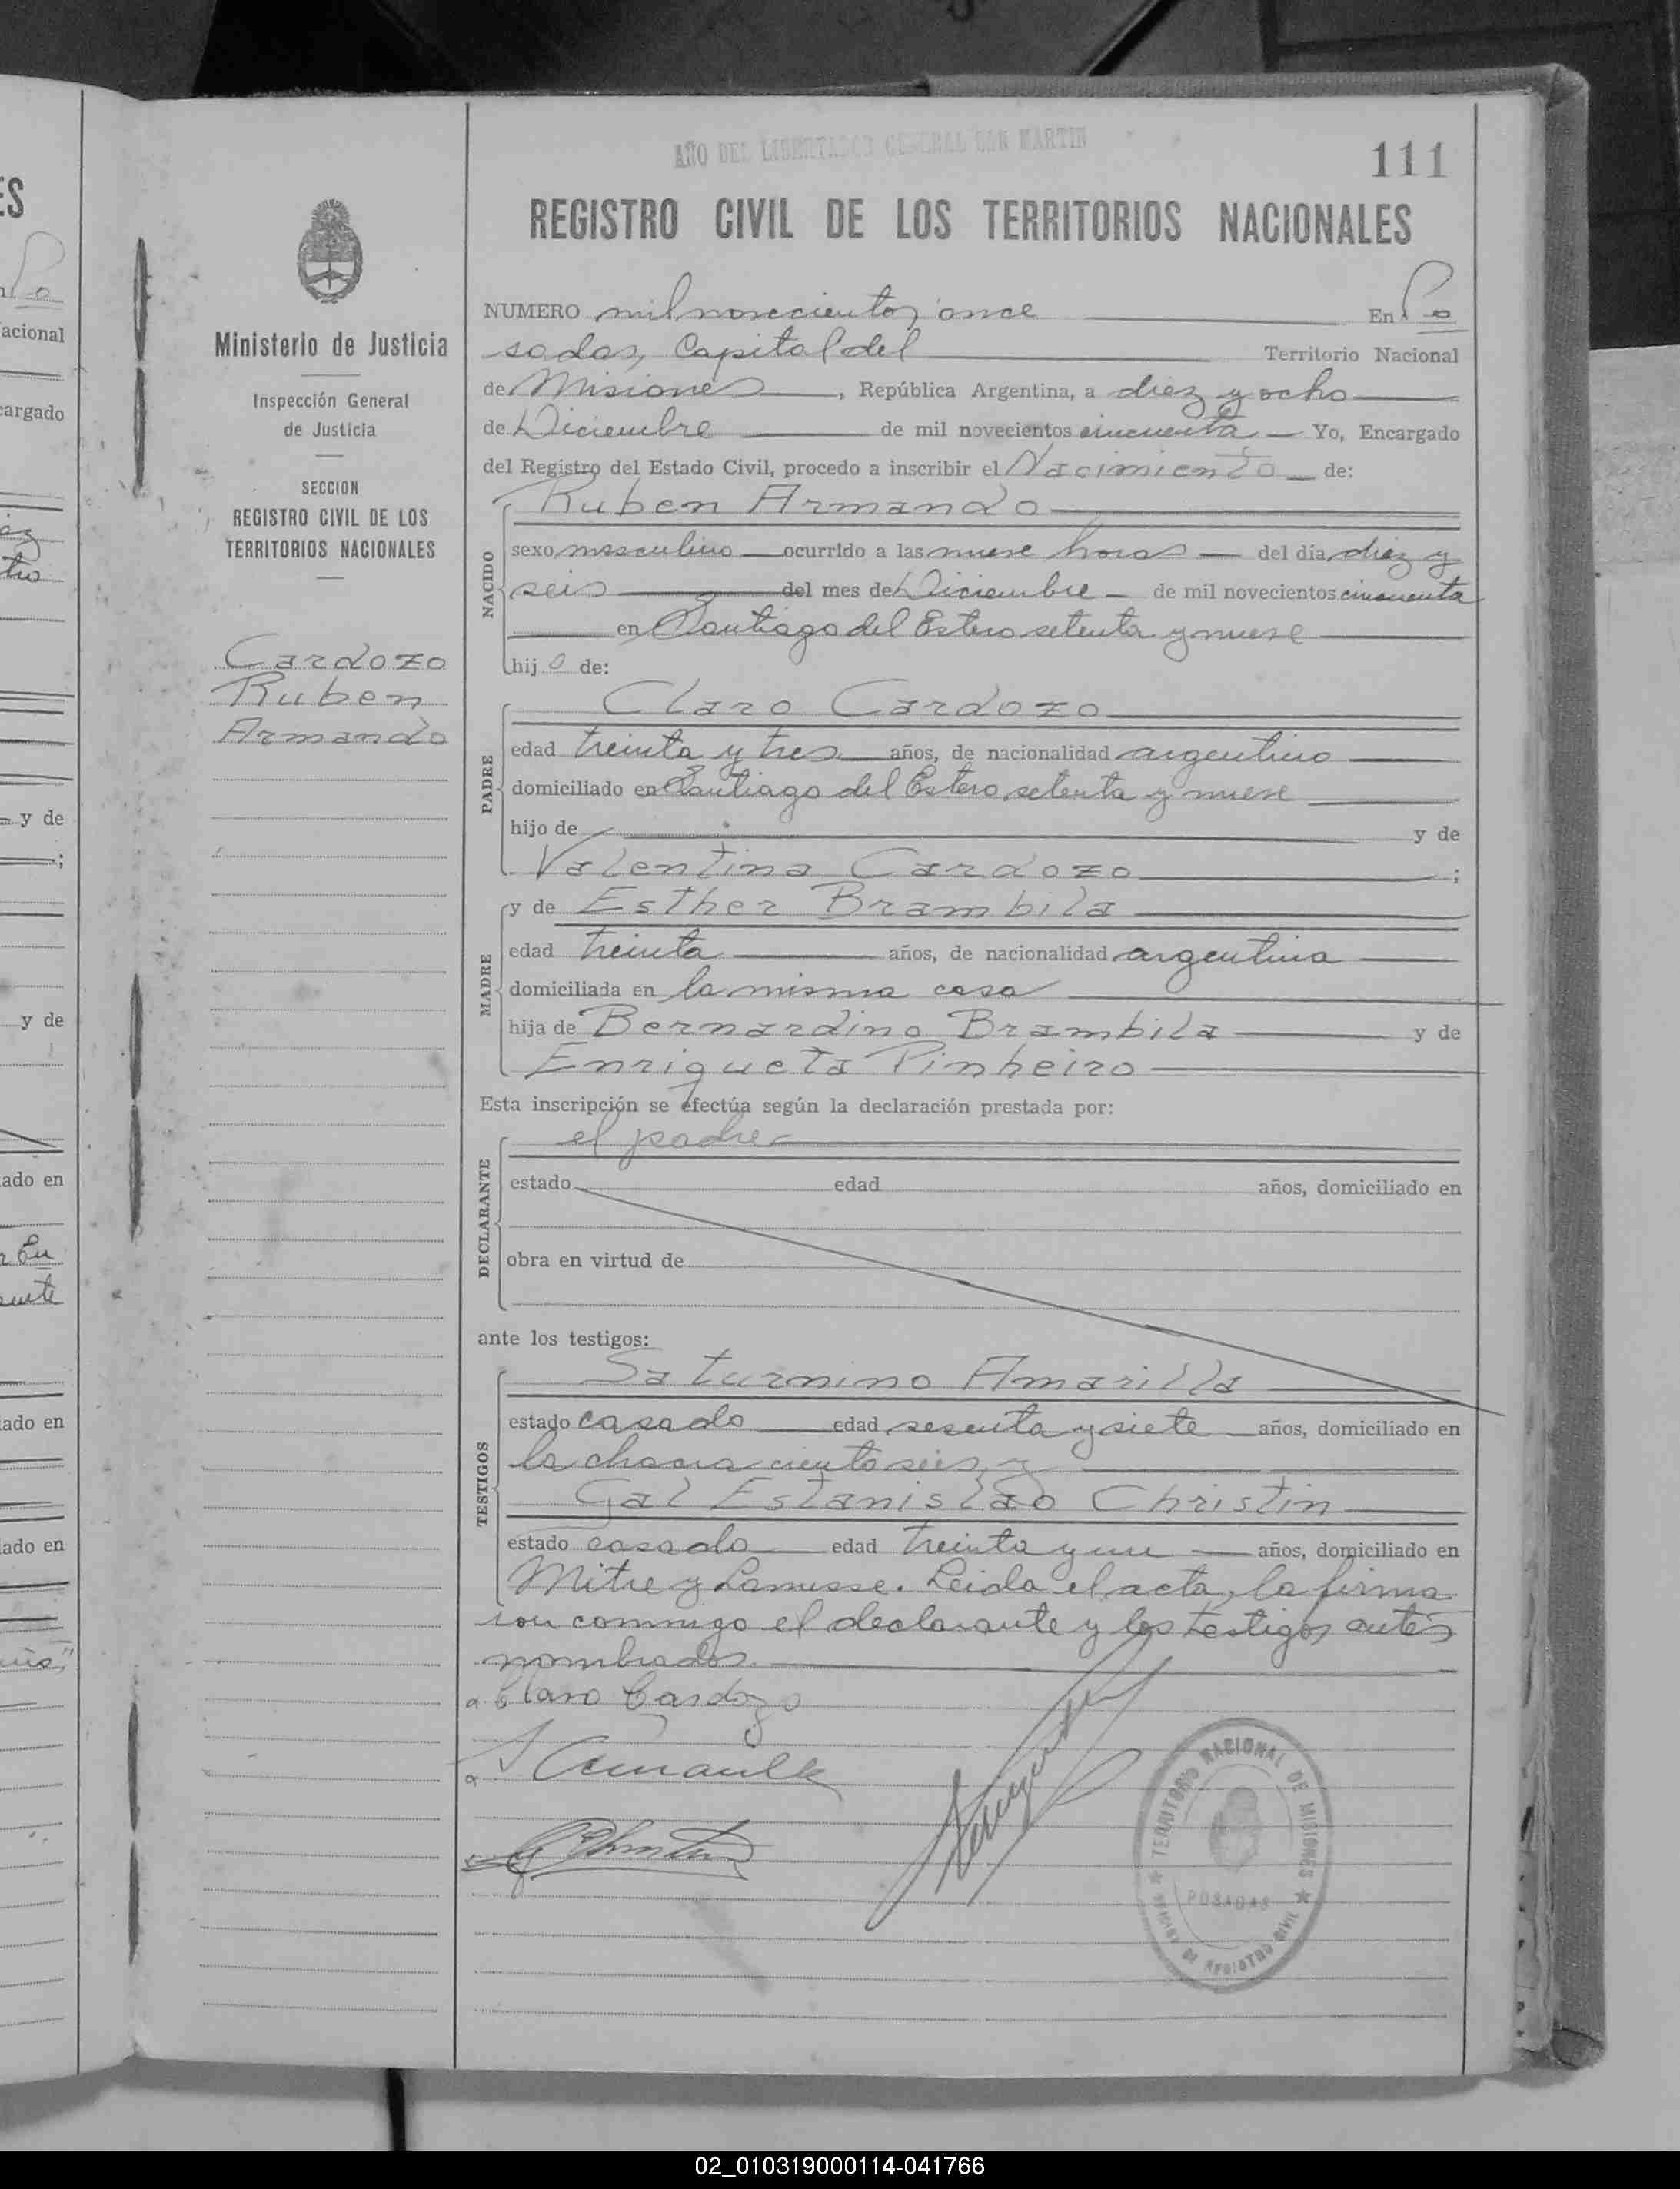 AÑO DEL LIBERTADOR GENERAL SAN MARTIN
111
REGISTRO CIVIL DE LOS TERRITORIOS NACIONALES
Ministerio de Justicia
Inspección General
de Justicia
SECCION
REGISTRO CIVIL DE LOS
TERRITORIOS NACIONALES
Cardozo
Ruben
Armando
NUMERO mil novecientos once En Po
sadas, Capital del Territorio Nacional
de Misiones, República Argentina, a diez y ocho
de Diciembre de mil novecientos cincuenta Yo, Encargado
del Registro del Estado Civil, procedo a inscribir el Nacimiento de:
NACIDO
Ruben Armando
sexo masculino ocurrido a las nueve horas del día diez y
seis del mes de Diciembre de mil novecientos cincuenta
en Santiago del Estero setenta y nueve
hijo de:
PADRE
Claro Cardozo
edad treinta y tres años, de nacionalidad argentino
domiciliado en Santiago del Estero setenta y nueve
hijo de y de
Valentina Cardozo;
MADRE
y de Esther Brambila
edad treinta años, de nacionalidad argentina
domiciliada en la misma casa
hija de Bernardino Brambila y de
Enriqueta Pinheiro
Esta inscripción se efectúa según la declaración prestada por:
DECLARANTE
el padre
estado edad años, domiciliado en
obra en virtud de
ante los testigos:
TESTIGOS
Saturnino Amarilla
estado casado edad sesenta y siete años, domiciliado en
la chacra ciento seis, y
Gal Estanislao Christin
estado casado edad treinta y un años, domiciliado en
Mitre y Lanusse. Leida el acta, la firma
ron conmigo el declarante y los testigos antes
nombrados.
Claro Cardozo
S Amarilla
TERRITORIO NACIONAL DE MISIONES
POSADAS
REGISTRO CIVIL
ES
acional
cargado
y de
y de
ado en
ado en
ado en
02_010319000114-041766